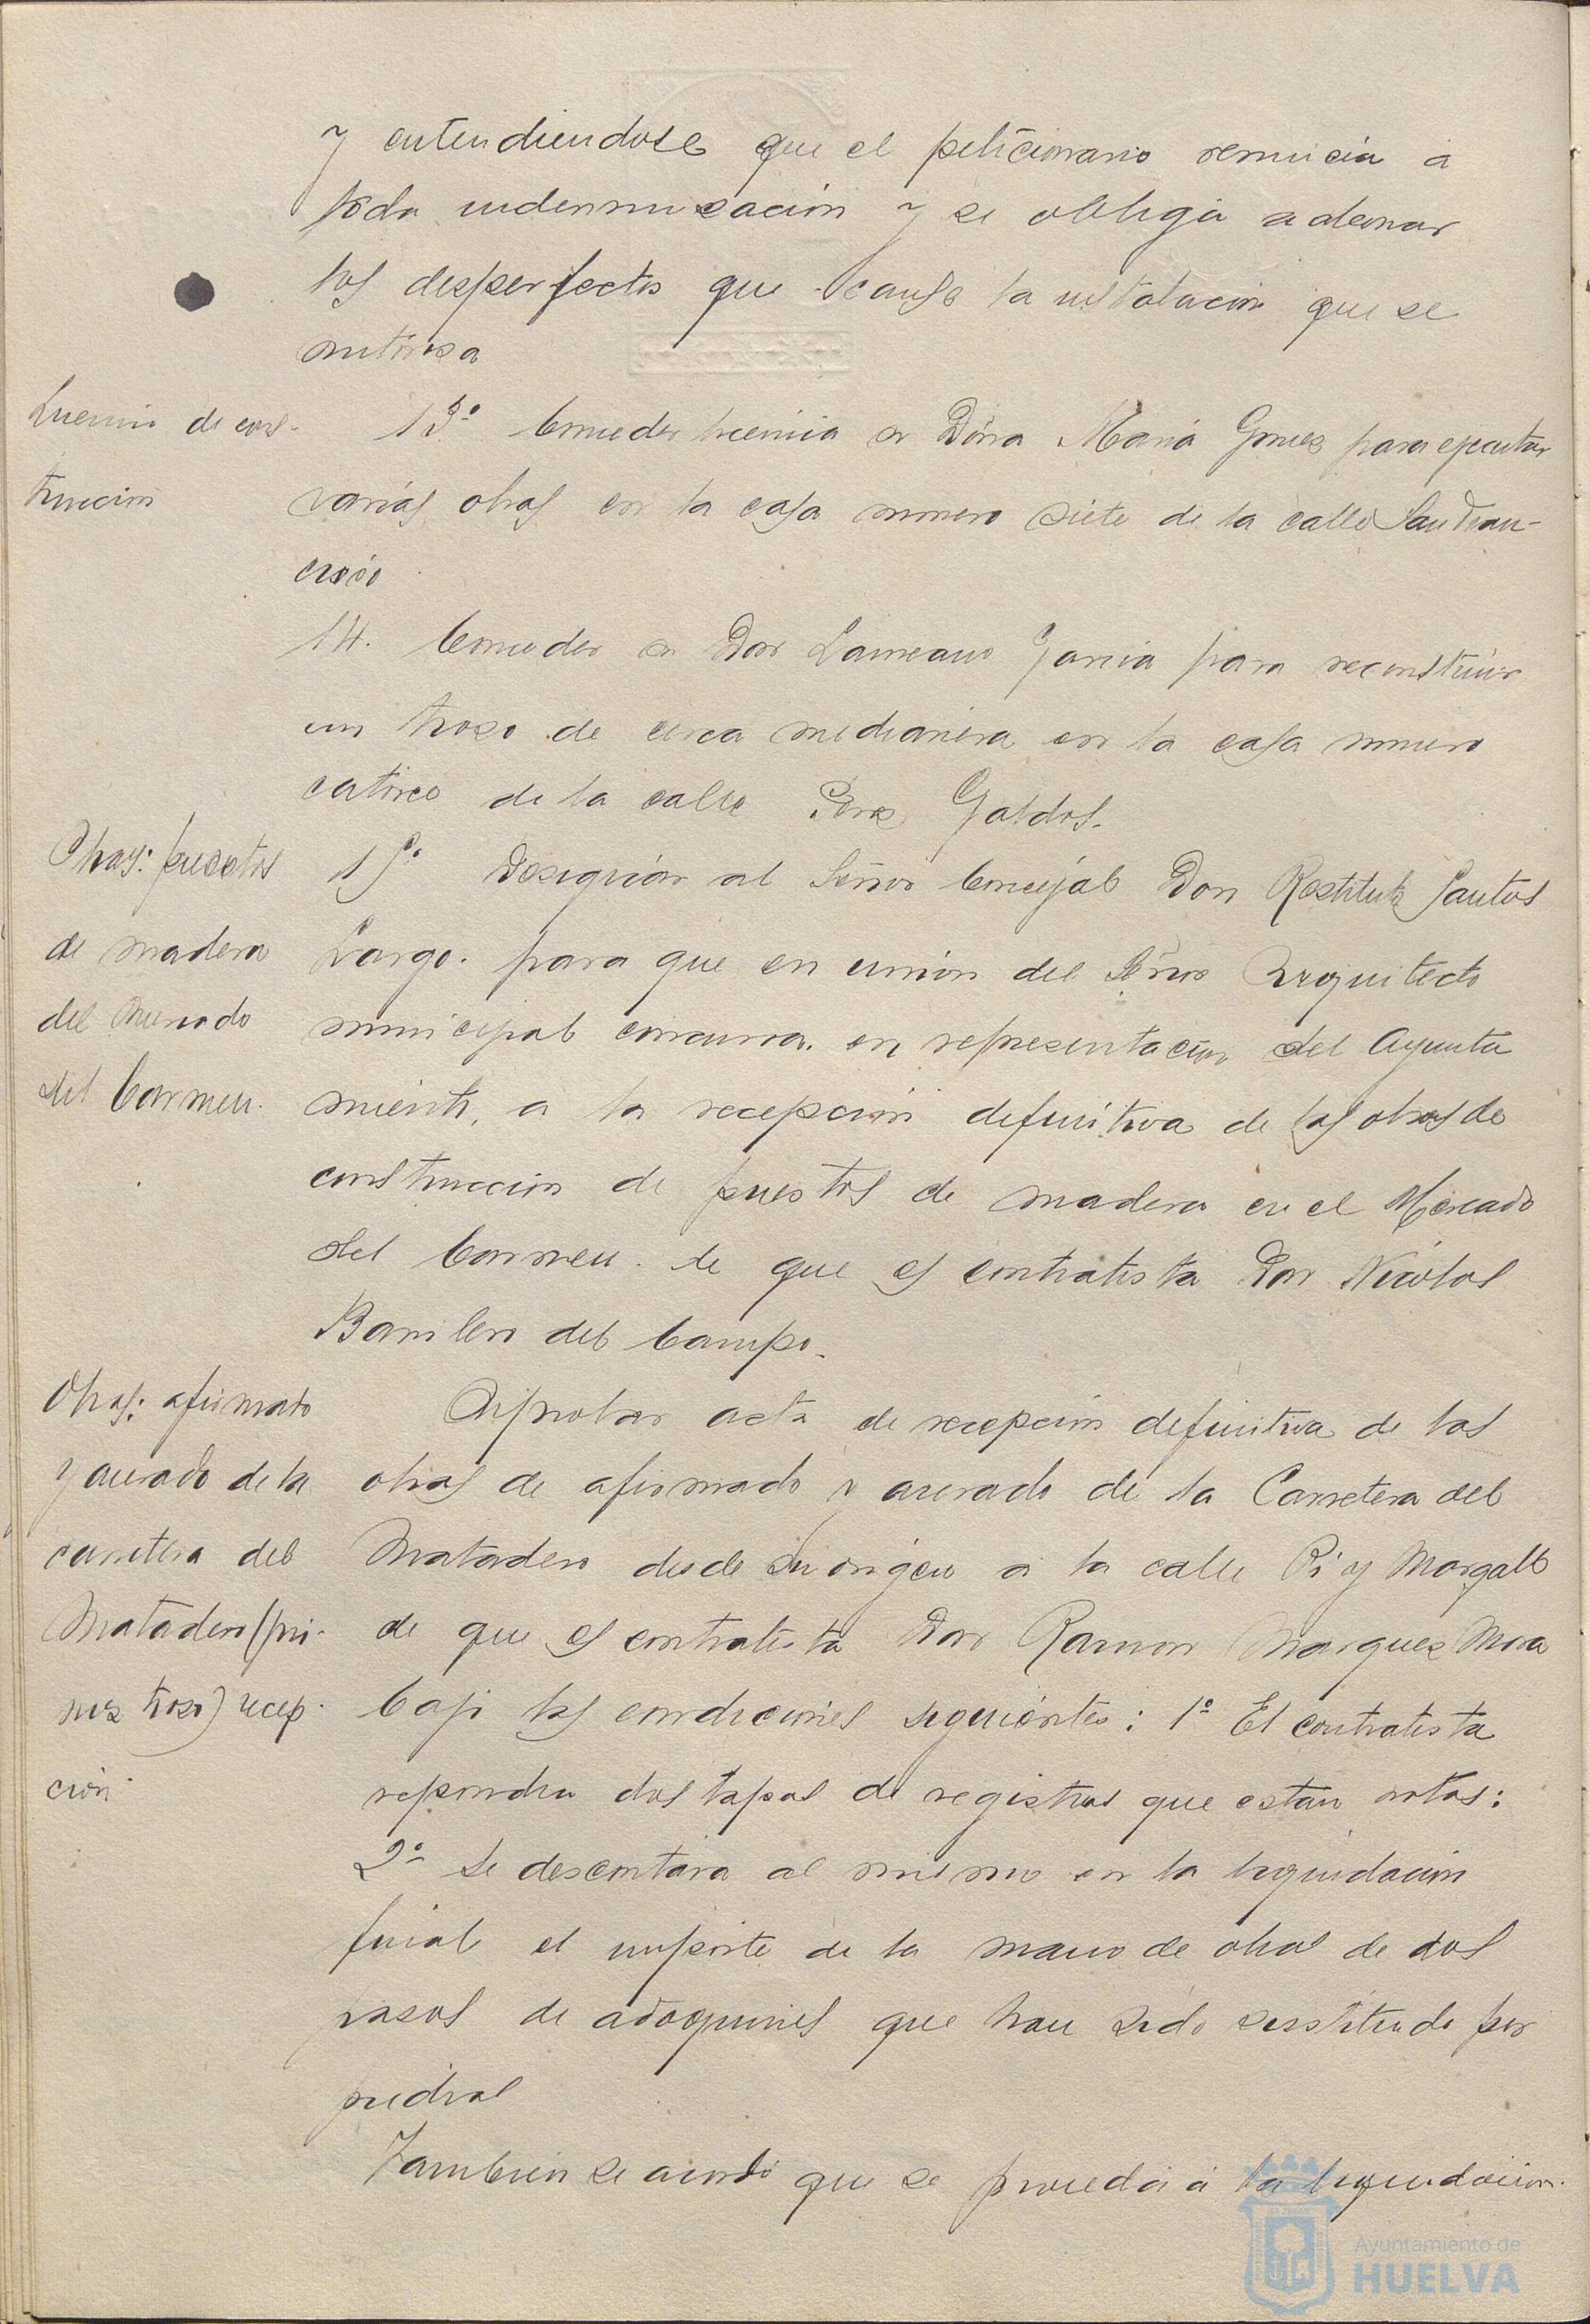 y entendiendose que el peticionario renuncia a
toda indennizacion y se obliga a abonar
los desperfectos que cause la instalacion que se
autorisa
Licencia de cons-
trucción
13º Conceder licencia a Doña Maria Gomez para ejecutar
varias obras en la casa numero siete de la calle San Fran-
cisco
14. Conceder a Don Laureano Garcia para reconstruir
un troso de cerca medianera en la casa numero
catorce de la calle Perez Galdos.
Obras: puestos
de madera
del Mercado
del Carmen.
15º Designar al Señor Concejal Don Restituto Santos
Largo. para que en union del Señor Arquitecto
municipal concurra. en representacion del Ayunta
miento, a la recepcion definitiva de las obras de
construccion de puestos de madera en el Mercado
del Carmen. de que es contratista Don Nicolas
Barilero del Campo.
Obras: afirmado
y acerado de la
carretera del
Matadero (pri-
mer troso) recep-
ción.
Aprobar acta de recepcion definitiva de las
obras de afirmado y acerado de la Carretera del
Matadero desde su origen a la calle Pi y Margall
de que es contratista Don Ramon Marquez Mora
bajo las condiciones siguientes: 1º El contratista
repondra dos tapas de registros que estan rotas:
2º Se descontara al mismo en la liquidacion
final el importe de la mano de obra de dos
pasos de adoquines que han sido sustituido por
piedras
Tambien se acordó que se proceda á la liquidacion.
Ayuntamiento de
HUELVA